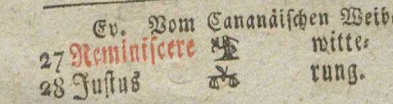 Ev. Vom Cananäiſchen Weibe
27 Reminiſcere witte⸗
28 Juſtus rung.